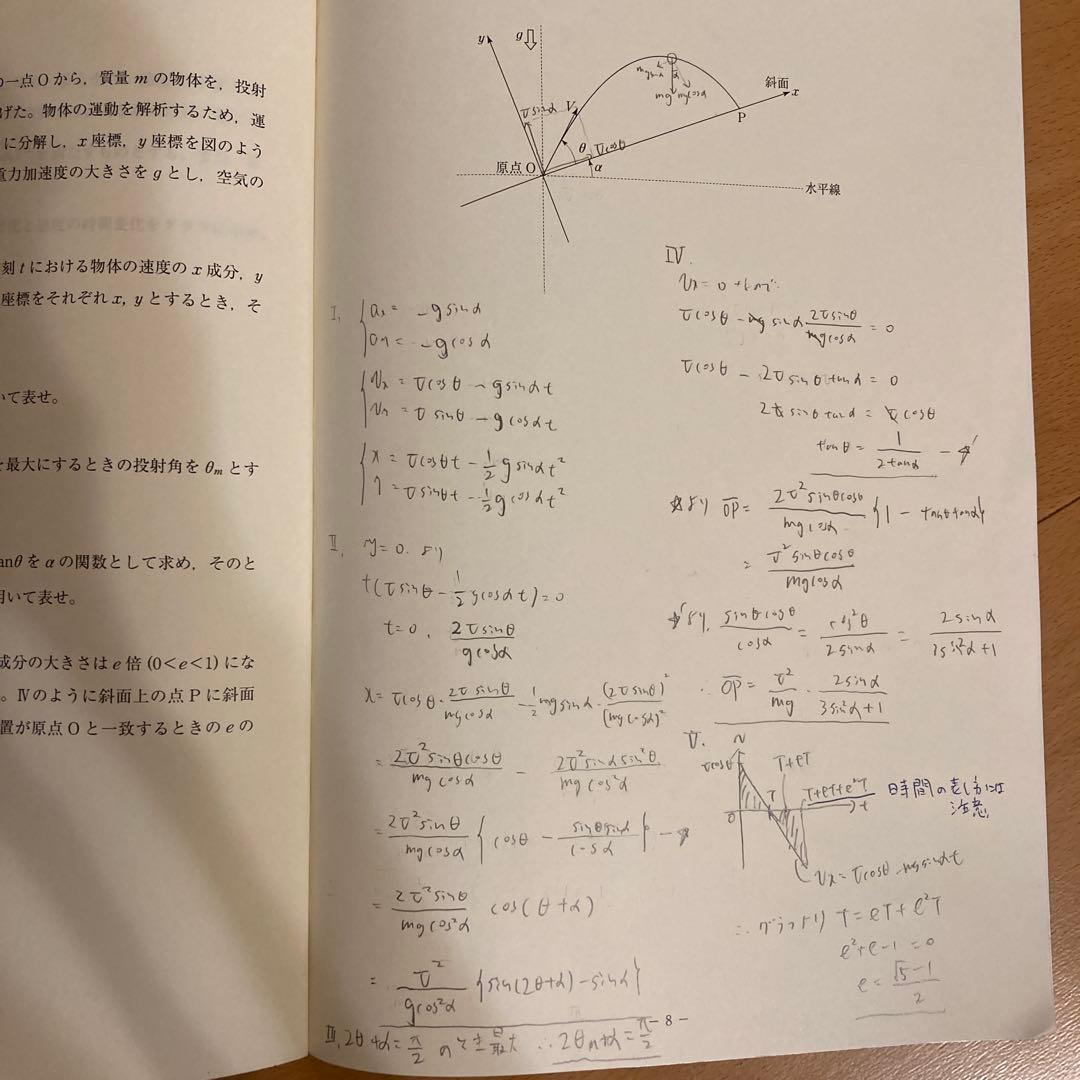 の一点Oから，質量 m の物体を，投射
げた。物体の運動を解析するため，運
に分解し，x 座標，y 座標を図のよう
重力加速度の大きさを g とし，空気の
刻 t における物体の速度の x 成分，y
座標をそれぞれ x, y とするとき，そ
いて表せ。
を最大にするときの投射角を θm とす
anθ を α の関数として求め，そのと
用いて表せ。
成分の大きさは e 倍 (0<e<1) にな
。Ⅳのように斜面上の点Pに斜面
置が原点Oと一致するときの e の
y
g
mgsinα
α
mg
mgcosα
斜面
x
P
vsinα
V
θ
vcosθ
α
原点 O
水平線
I.
ax = -gsinα
ay = -gcosα
vx = vcosθ - gsinαt
vy = vsinθ - gcosαt
x = vcosθt - 1/2 gsinαt²
y = vsinθt - 1/2 gcosαt²
Ⅱ. y=0. より
t(vsinθ - 1/2 gcosαt)=0
t=0, 2vsinθ/gcosα
x = vcosθ・2vsinθ/mgcosα - 1/2 mgsinα・(2vsinθ)²/(mgcosα)²
= 2v²sinθcosθ/mgcosα - 2v²sinαsin²θ/mgcos²α
= 2v²sinθ/mgcosα {cosθ - sinθsinα/cosα}
= 2v²sinθ/mgcos²α cos(θ+α)
= v²/gcos²α {sin(2θ+α)-sinα}
Ⅲ. 2θ+α=π/2 のとき最大 ∴2θm+α=π/2
Ⅳ.
vx=0
vcosθ - mgsinα 2vsinθ/mgcosα = 0
vcosθ - 2vsinθtanα = 0
2vsinθtanα = vcosθ
tanθ = 1/2tanα
☆より OP = 2v²sinθcosθ/mgcosα {1 - tanθtanα}
= v²sinθcosθ/mgcosα
☆'より. sinθcosθ/cosα = cos²θ/2sinα = 2sinα/3sin²α+1
∴ OP = v²/mg・2sinα/3sin²α+1
Ⅴ.
vcosθ
T+eT
T
T+eT+e²T
t
O
日時間の表し方には
注意
vx=vcosθ-mgsinαt
∴グラフより T=eT+e²T
e²+e-1=0
e = √5-1/2
- 8 -